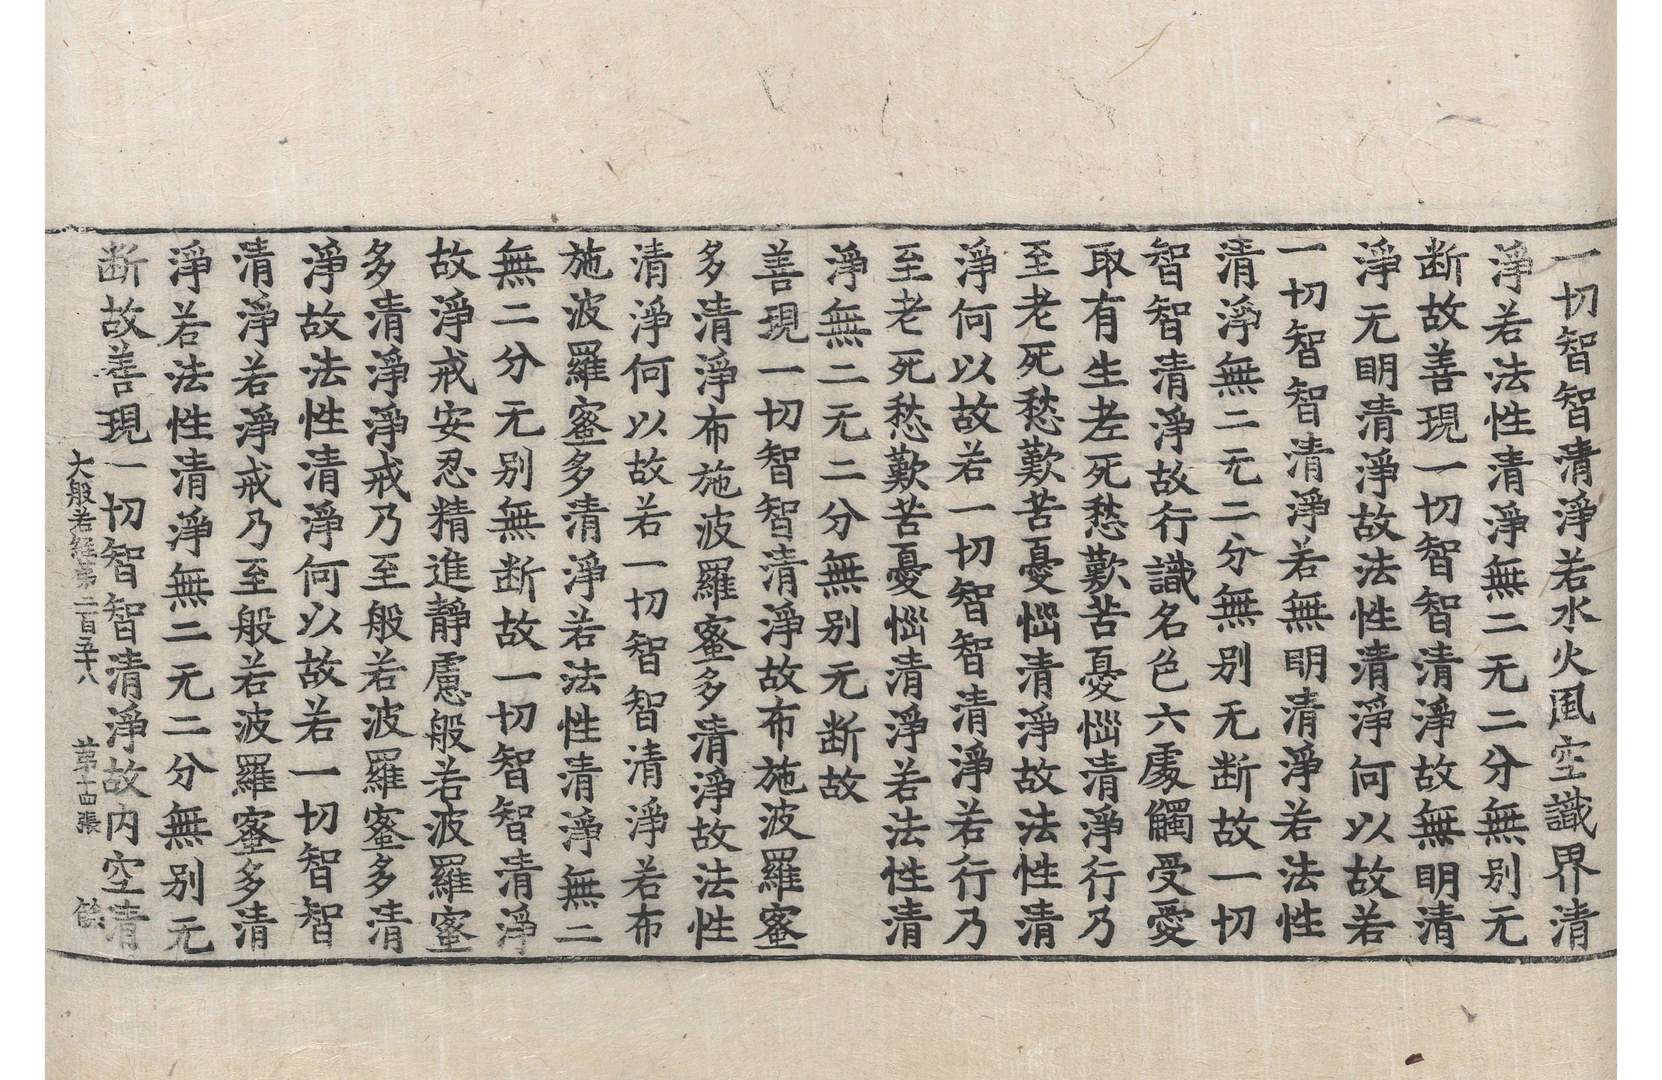 一切智智清淨若水火風空識界清
淨若法性清淨無二无二分無別无
断故善現一切智智清淨故無明清
淨无明清淨故法性清淨何以故若
一切智智清淨若無明清淨若法性
清淨無二无二分無別无断故一切
智智清淨故行識名色六處觸受愛
取有生老死愁歎苦憂惱清淨行乃
至老死愁歎苦憂惱清淨故法性清
淨何以故若一切智智清淨若行乃
至老死愁歎苦憂惱清淨若法性清
淨無二无二分無別无断故
善現一切智智清淨故布施波羅蜜
多清淨布施波羅蜜多清淨故法性
清淨何以故若一切智智清淨若布
施波羅蜜多清淨若法性清淨無二
無二分无別無断故一切智智清淨
故淨戒安忍精進靜慮般若波羅蜜
多清淨淨戒乃至般若波羅蜜多清
淨故法性清淨何以故若一切智智
清淨若淨戒乃至般若波羅蜜多清
淨若法性清淨無二无二分無別无
断故善現一切智智清淨故内空清
大般若経苐二百五十八 苐十四張 餘